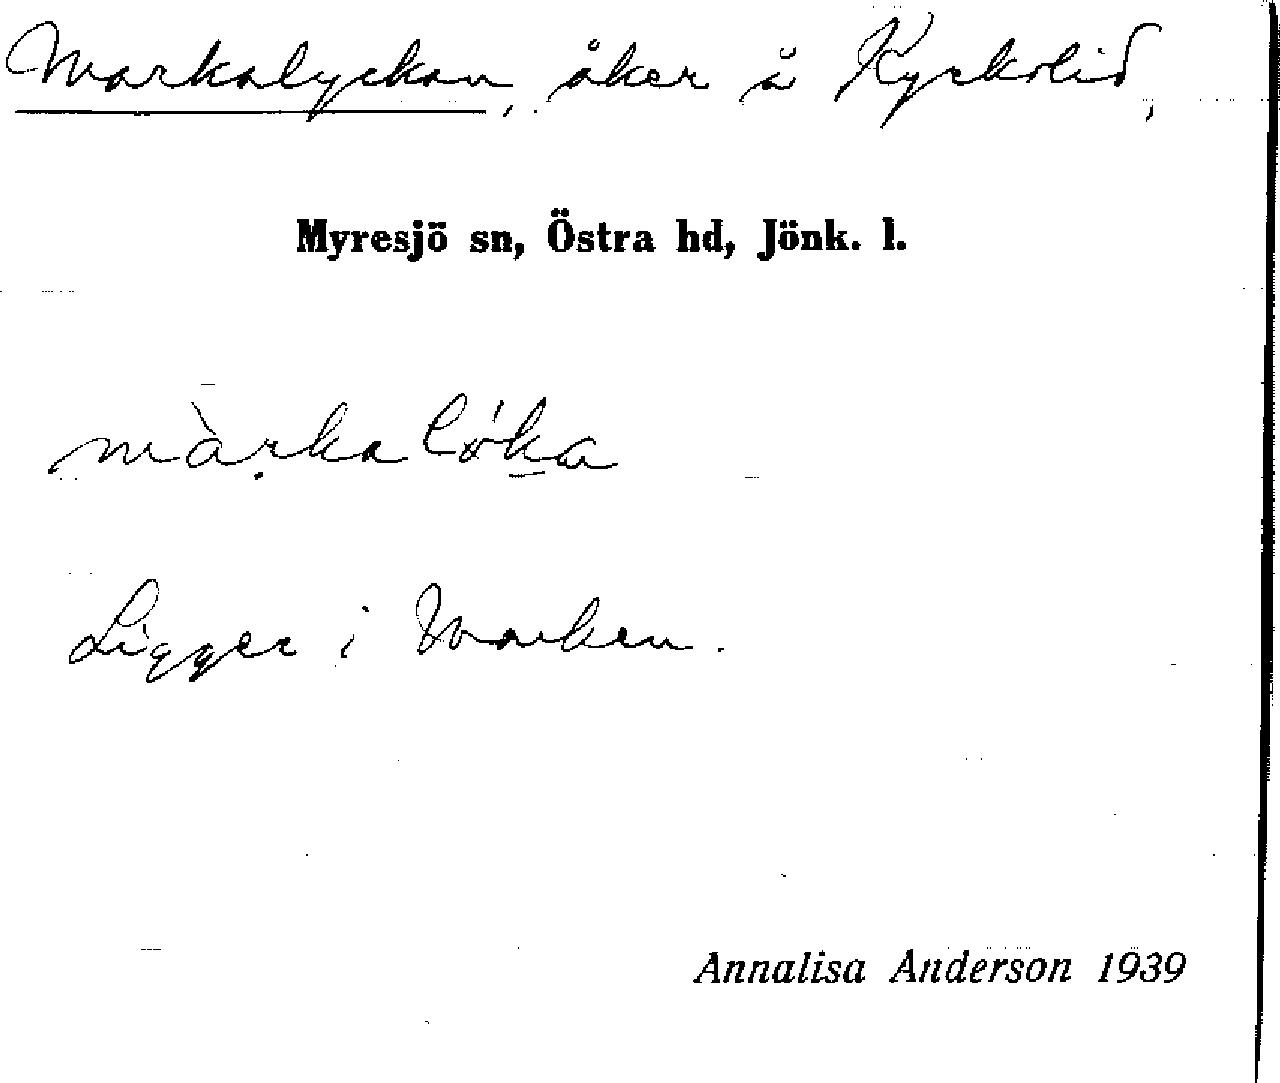 Markalyckan, åker å Kyrkolid,
Myresjö sn, Östra hd, Jönk. l.
màrka lóka
Ligger i Marken.
Annalisa Anderson 1939